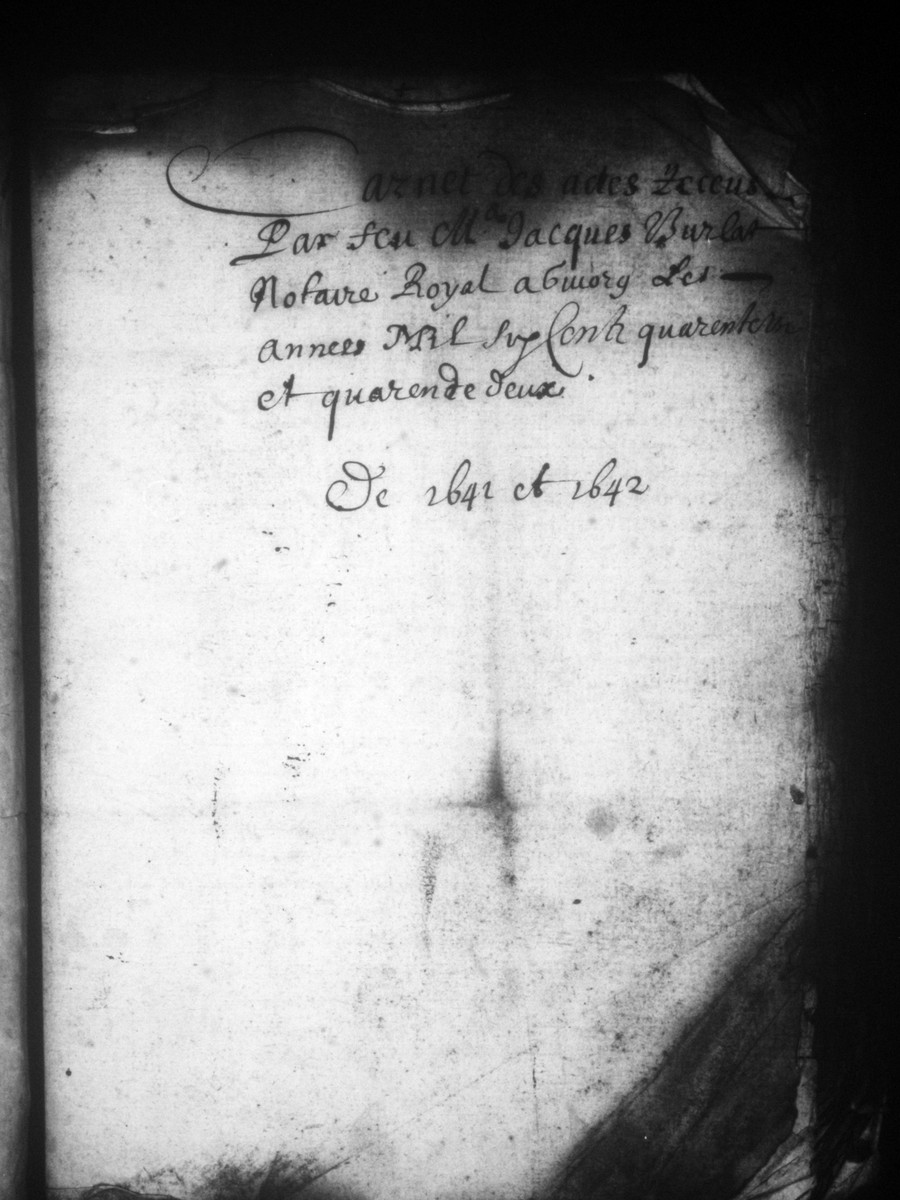 Carnet des actes Receus
Par feu Me Jacques Burlat
Notaire Royal a Les
annees Mil Six Cents quarente un
et quarende deux.
De 1641 et 1642